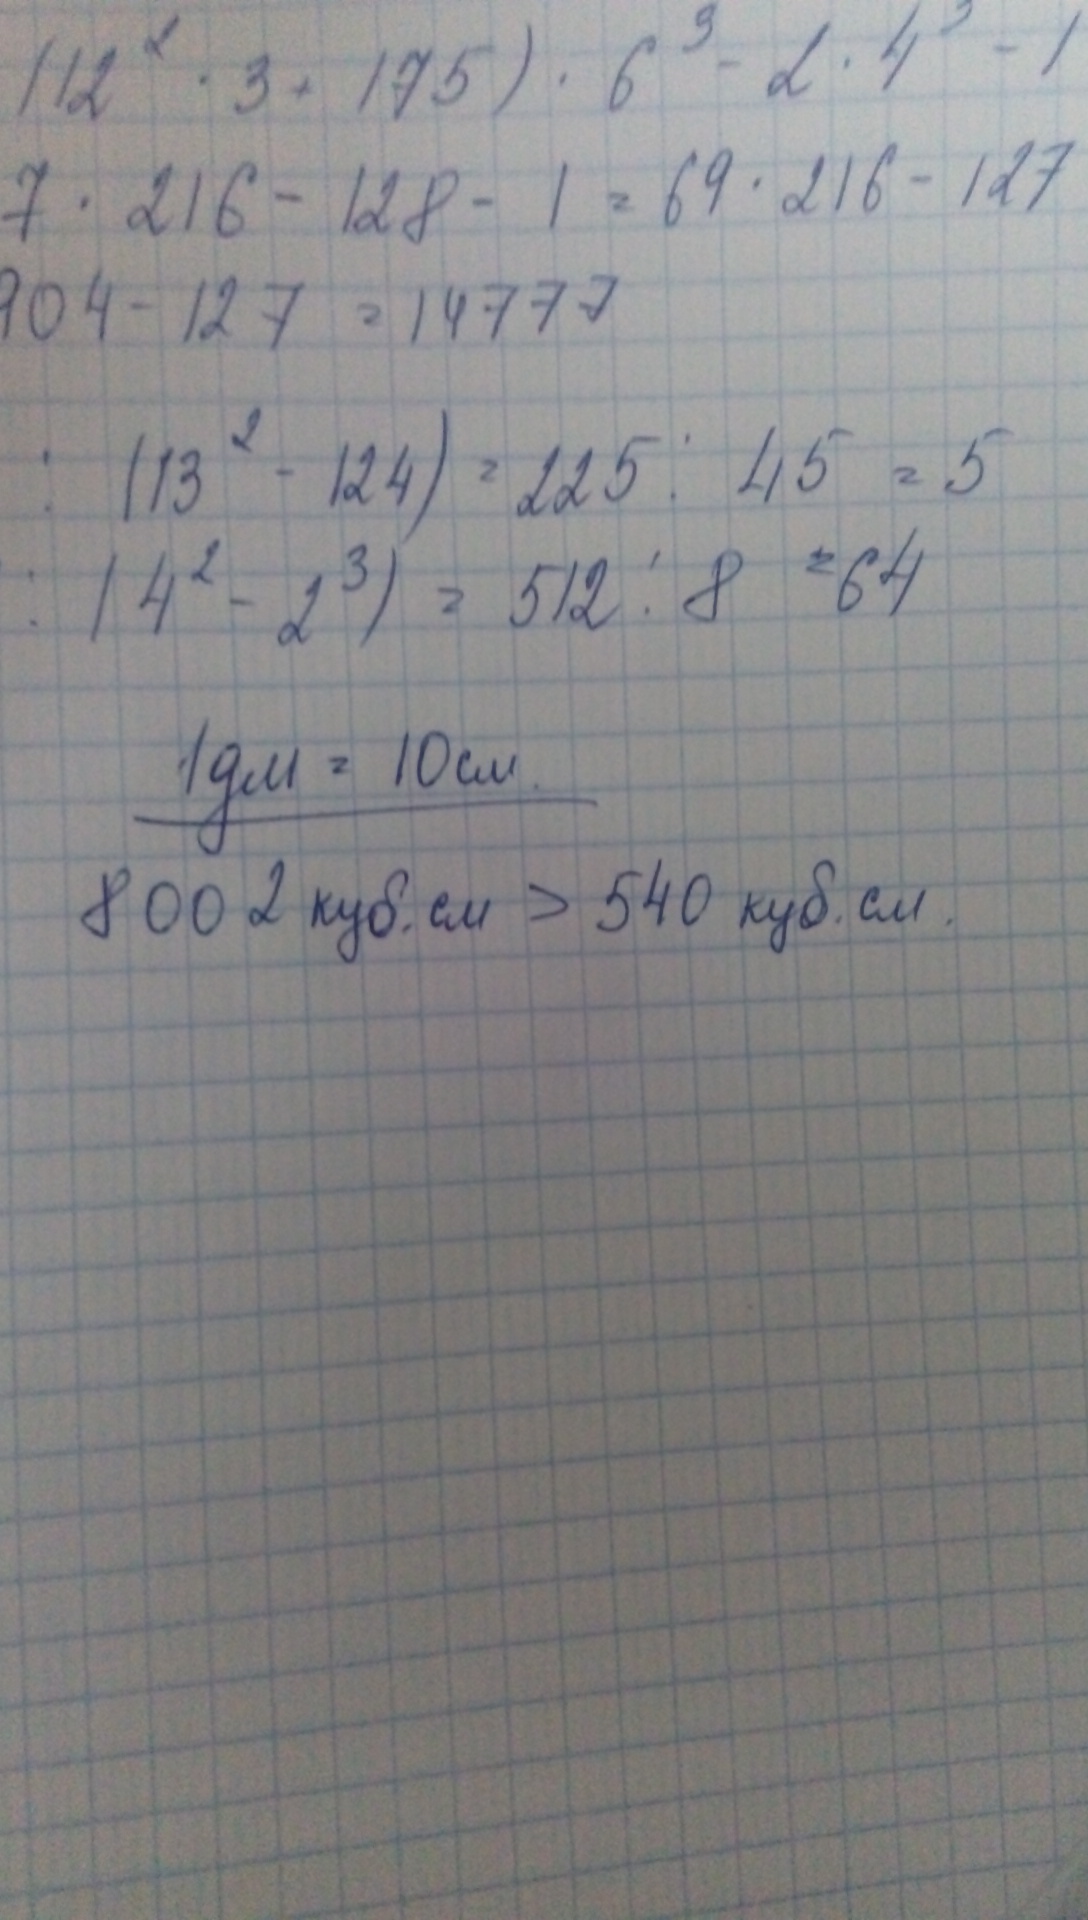 (12² · 3 + 175) · 6³ - 2 · 4³ - 1
7 · 216 - 128 - 1 = 69 · 216 - 127
904 - 127 = 14777
: (13² - 124) = 225 : 45 = 5
: (4² - 2³) = 512 : 8 = 64
1дм = 10см.
8002 куб.см > 540 куб.см.